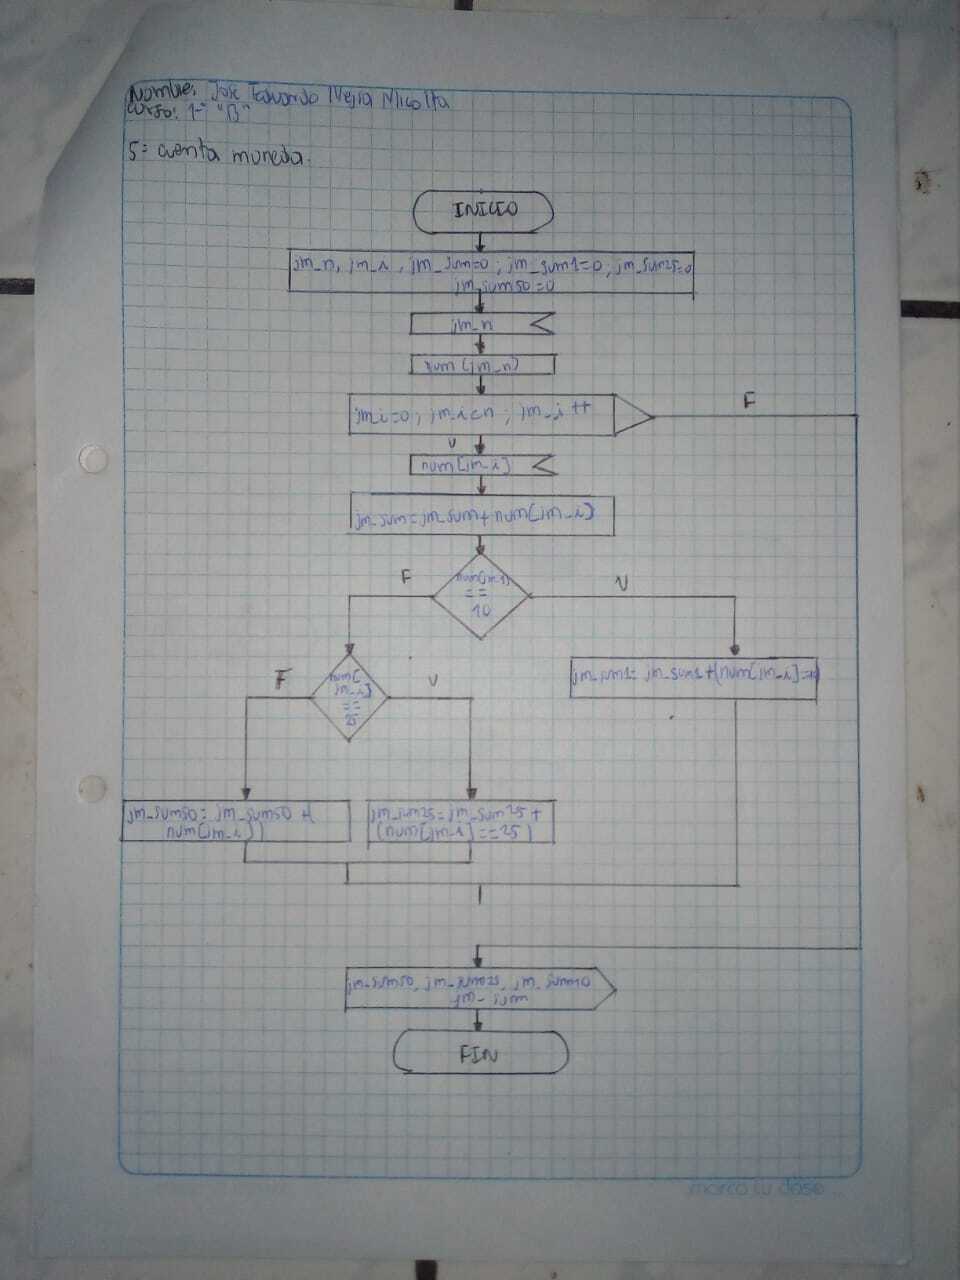 Nombre: José Eduardo Mejia Micolta
curso: 1- "B"
5= cuenta moneda.
INICIO
jm_n, jm_i, jm_sum=0; jm_sum1=0; jm_sum25=0
jm_sum50=0
jm_n
num (jm_n)
jmi=0; jm_i<n; jm_i ++
F
V
num[jm-i]
jm_sum=jm_sum+num[jm_i]
F
num[jm-i]
==
10
V
F
num[
jm_i]
==
25
V
jm_sum1= jm_sum1+(num[jm_i]==
jm_sum50= jm_sum50 +(
num[jm_i])
jm_sum25=jm_sum25 +
(num[jm_i]==25)
jm_sum50, jm_sum25, jm_sum10
jm- sum
FIN
marca tu clase